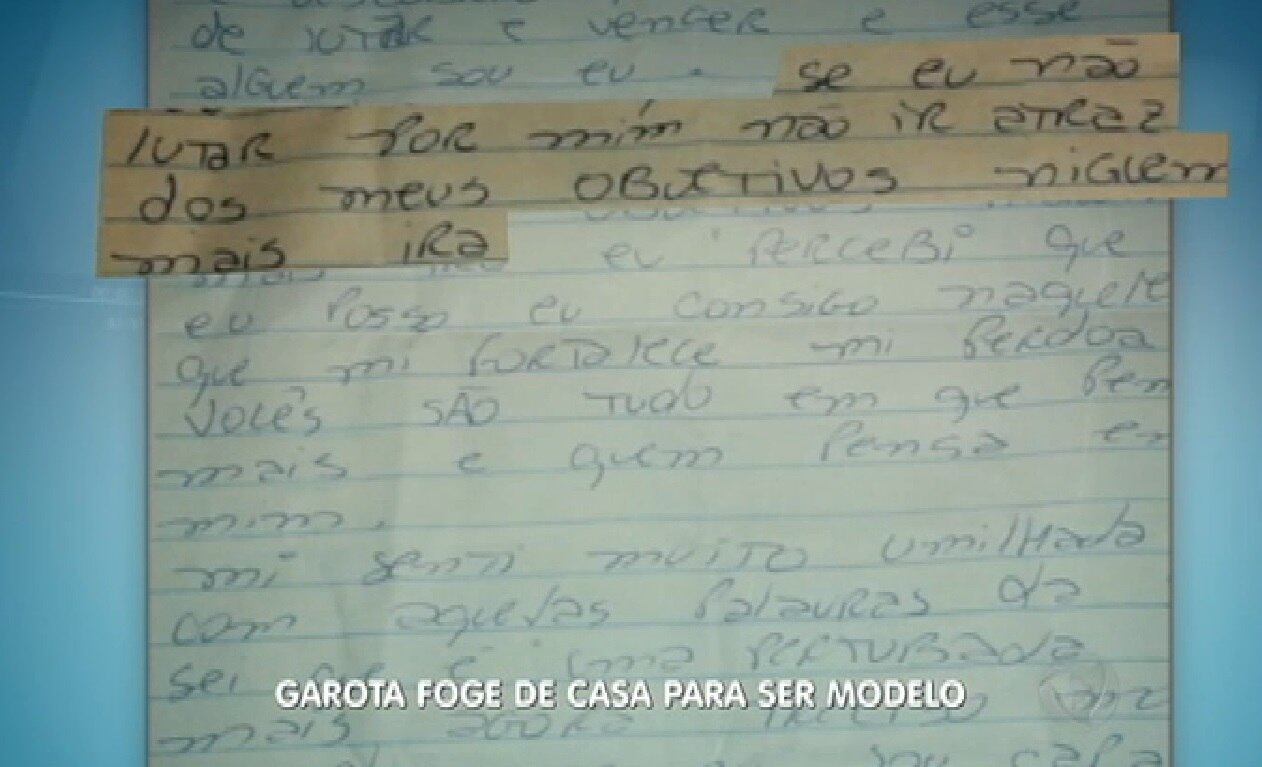 de lutar e vencer e esse
alguem sou eu. se eu não
lutar por mim não ir atraz
dos meus objetivos niguem
mais ira
eu percebi que
eu posso eu consigo naquele
que mi fortalece mi perdoa
vocês são tudo em que pen
mais e quem pensa em
mim.
mi senti muito umilhada
com aquelas palavras da
sei é uma perturbada
mais agora
sou capa
GAROTA FOGE DE CASA PARA SER MODELO